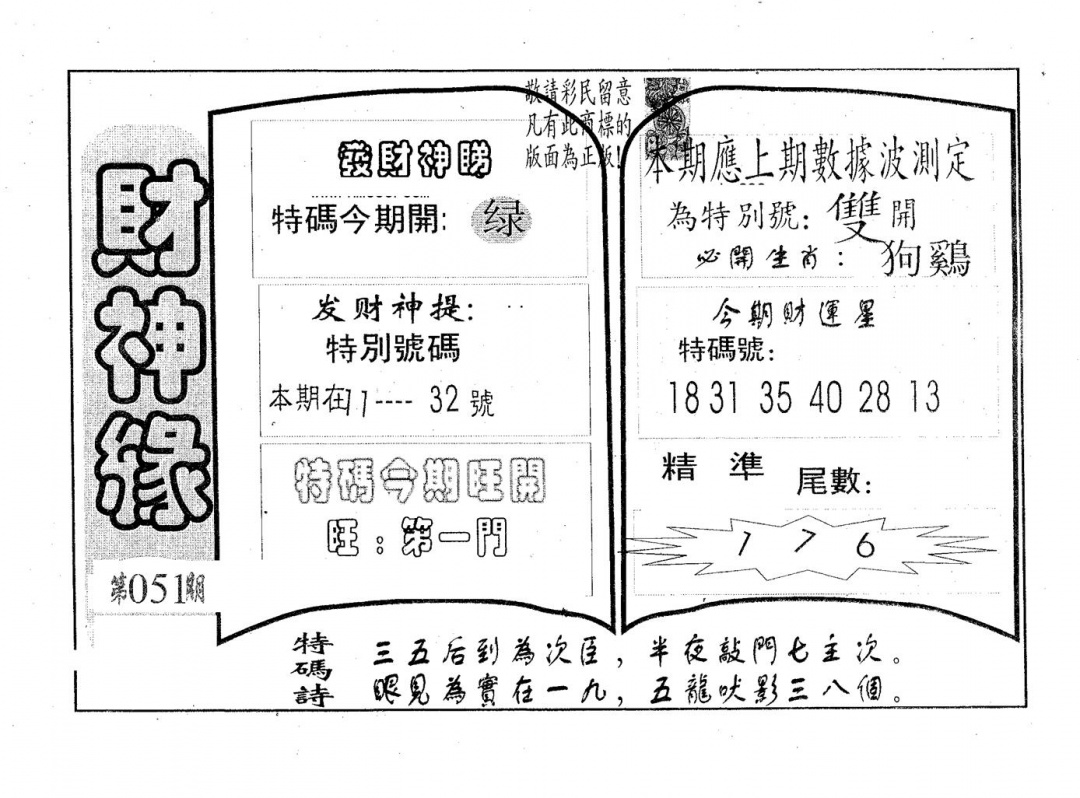 財神緣
第051期
敬請彩民留意
凡有此商標的
版面為正版!
發財神睇
特碼今期開: 绿
发财神提:
特別號碼
本期在11---- 32號
特碼今期旺開
旺:第一門
本期應上期數據波測定
為特別號: 雙開
必開生肖: 狗鷄
今期財運星
特碼號:
18 31 35 40 28 13
精準 尾數:
1 7 6
特碼詩
三五后到為次臣,半夜敲門七主次。
眼見為實在一九,五龍吠影三八個。